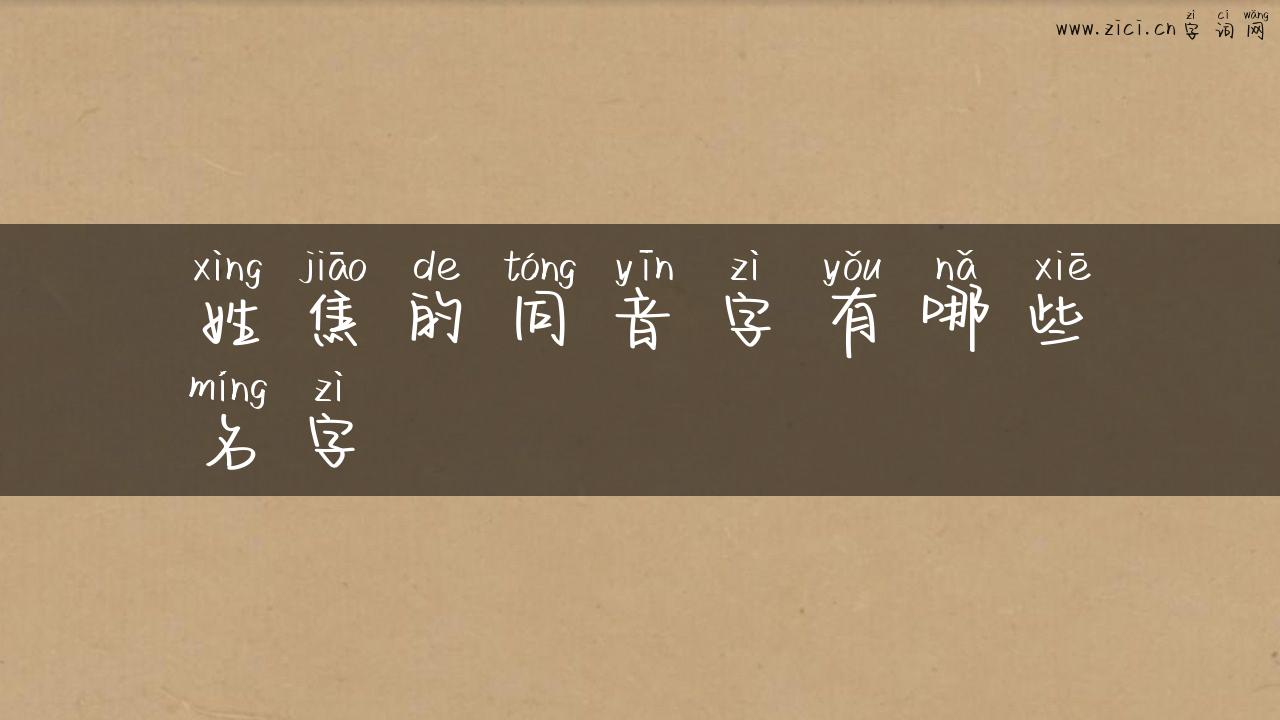 www.zici.cn 字词网
zì cí wǎng
xìng jiāo de tóng yīn zì yǒu nǎ xiē
姓焦的同音字有哪些
míng zì
名字